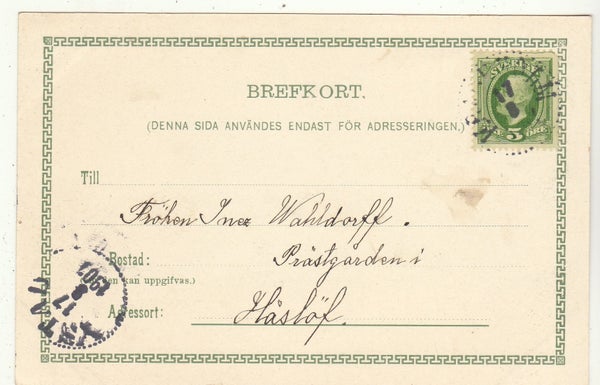 BREFKORT.
SVERIGE
5 ÖRE
17
8
(DENNA SIDA ANVÄNDES ENDAST FÖR ADRESSERINGEN.)
Till
Fröken Inez Wahldorff.
Bostad: Prästgården i
kan uppgifvas.)
Adressort: Håslöf.
1901
17
8
YSTAD